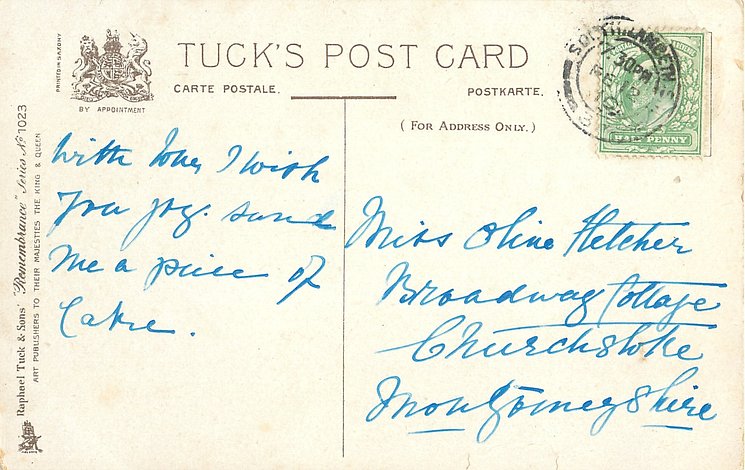 PRINTED IN SAXONY
BY APPOINTMENT
TUCK'S POST CARD
CARTE POSTALE.
POSTKARTE.
(FOR ADDRESS ONLY.)
SOUTH LAMBETH
7.30PM
FE 12
HALFPENNY
Raphael Tuck & Sons' "Remembrance" Series No 1023
ART PUBLISHERS TO THEIR MAJESTIES THE KING & QUEEN
With love I wish
You joy. send
me a piece of
Cake.
Miss Olive Fletcher
Broadway Cottage
Churchstoke
Montgomeryshire